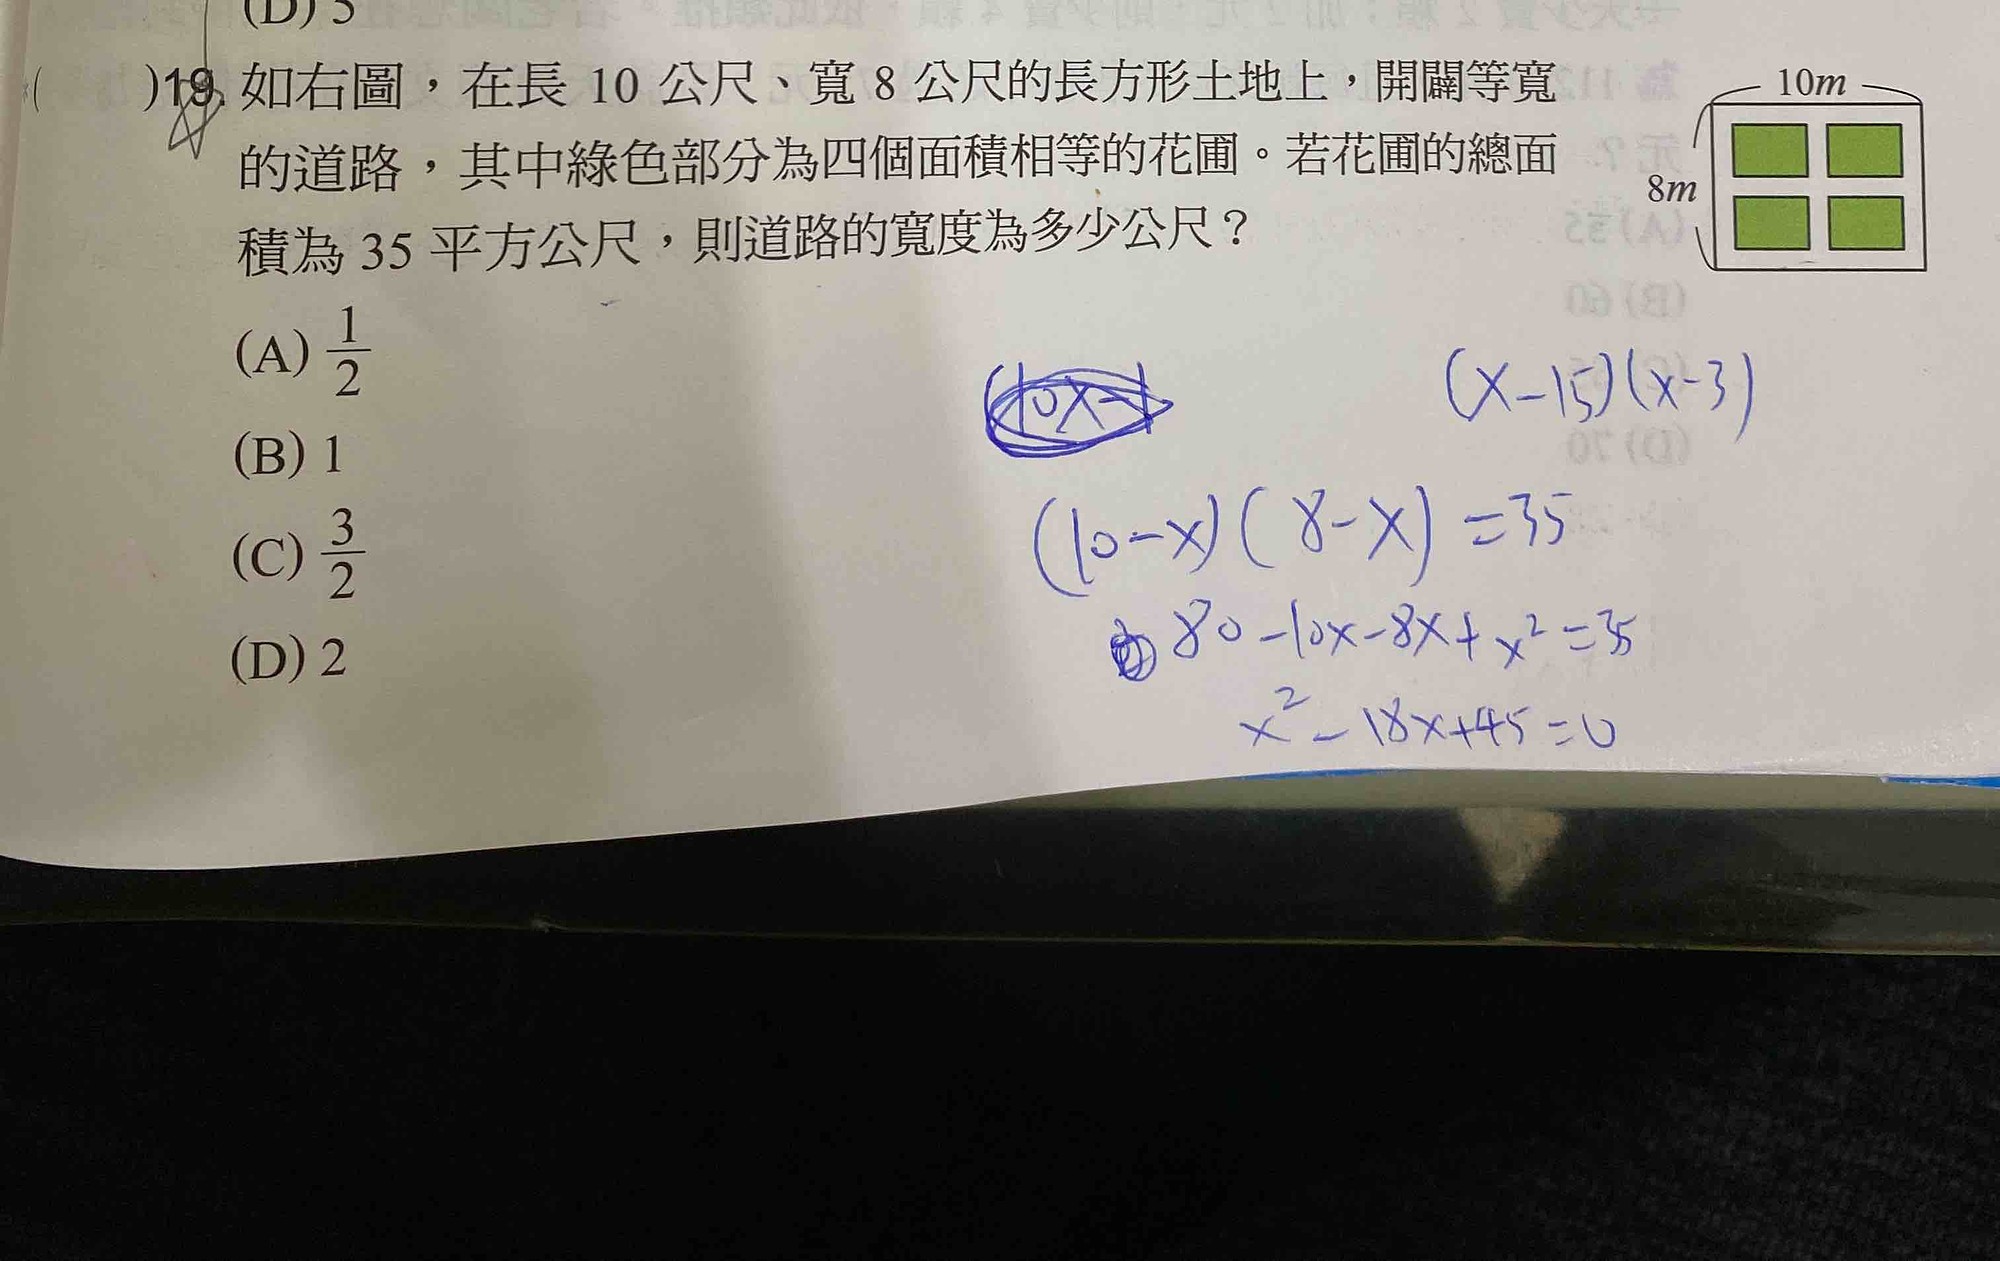 (D) 5
( )19. 如右圖，在長 10 公尺、寬 8 公尺的長方形土地上，開闢等寬
的道路，其中綠色部分為四個面積相等的花圃。若花圃的總面
積為 35 平方公尺，則道路的寬度為多少公尺？
10m
8m
(A) 1/2
(B) 1
(C) 3/2
(D) 2
(x-15)(x-3)
(10-x)(8-x)=35
80-10x-8x+x²=35
x²-18x+45=0